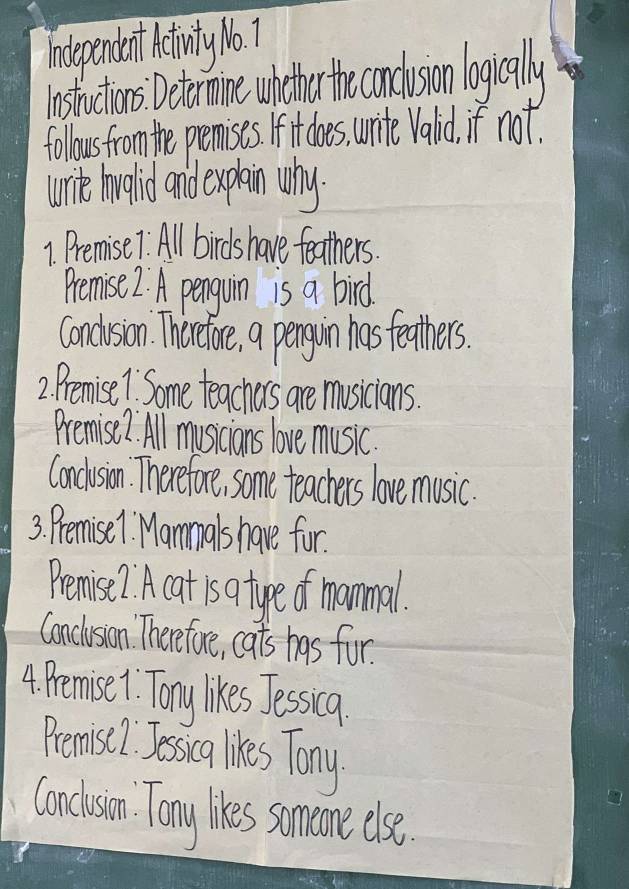 Independent Activity No. 1
Instructions: Determine whether the conclusion logically
follows from the premises. If it does, write Valid, if not,
write Invalid and explain why.
1. Premise 1: All birds have feathers.
Premise 2: A penguin is a bird.
Conclusion: Therefore, a penguin has feathers.
2. Premise 1: Some teachers are musicians.
Premise 2: All musicians love music.
Conclusion: Therefore, some teachers love music.
3. Premise 1: Mammals have fur.
Premise 2: A cat is a type of mammal.
Conclusion: Therefore, cats has fur.
4. Premise 1: Tony likes Jessica.
Premise 2: Jessica likes Tony.
Conclusion: Tony likes someone else.